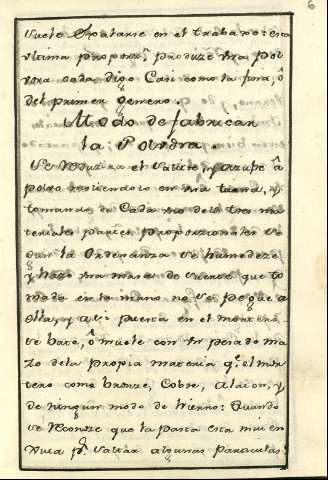 6
suele gratarse en el trabajo: esta
ultima proporz.n produze una pol
vora cada digo Casi como la fina, ô
del primer genero.
Modo de fabricar
la Polvora.
Se reduzira el salitre, y azufre â
polvo moliendolo en una tahona, y
tomando de Cada uno de los tres ma
teriales partes proporzionales se
gun la Ordenanza se humedeze
y haze una masa de suerte que to
mada en la mano no se pegue a
ella, y asi puesta en el mortero
se bate, ô muele con un pisado ma
zo de la propia materia q.e el mor
tero como bronze, Cobre, Alaton, y
de ningun modo de hierro: Quando
se reconoze que la pasta esta mui en
juta p.r saltar algunas particulas